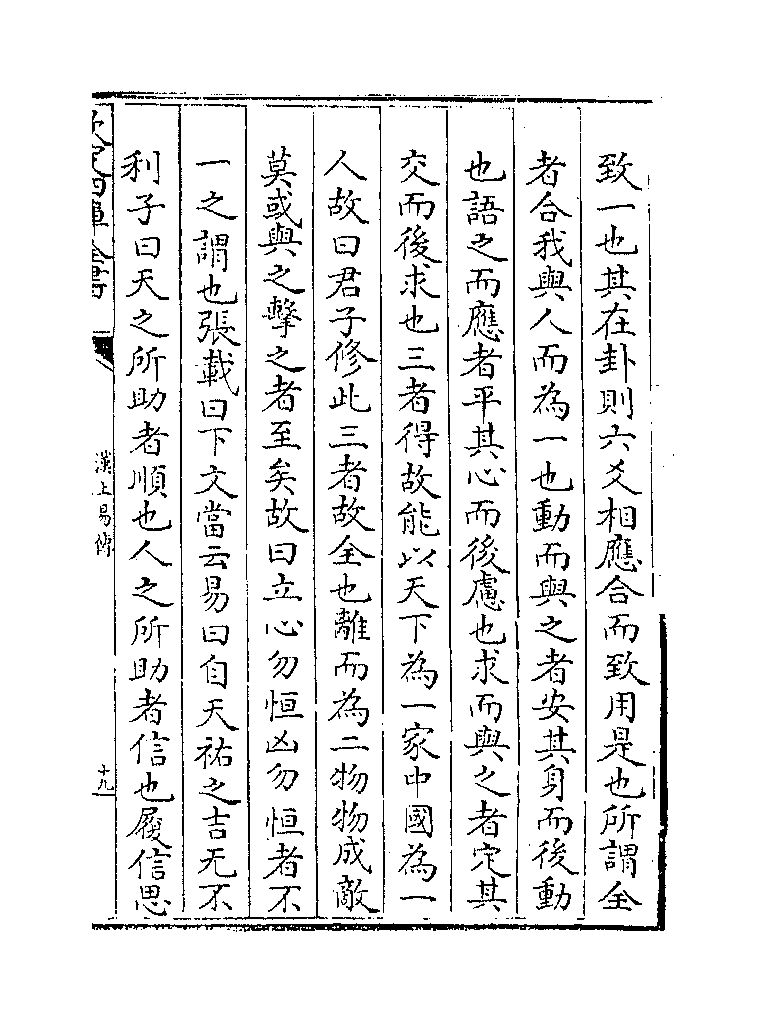 致一也其在卦則六爻相應合而致用是也所謂全
者合我與人而為一也動而與之者安其身而後動
也語之而應者平其心而後慮也求而與之者定其
交而後求也三者得故能以天下為一家中國為一
人故曰君子修此三者故全也離而為二物物成敵
莫或與之擊之者至矣故曰立心勿恒凶勿恒者不
一之謂也張載曰下文當云易曰自天祐之吉无不
利子曰天之所助者順也人之所助者信也履信思
欽定四庫全書
漢上易傳
十九